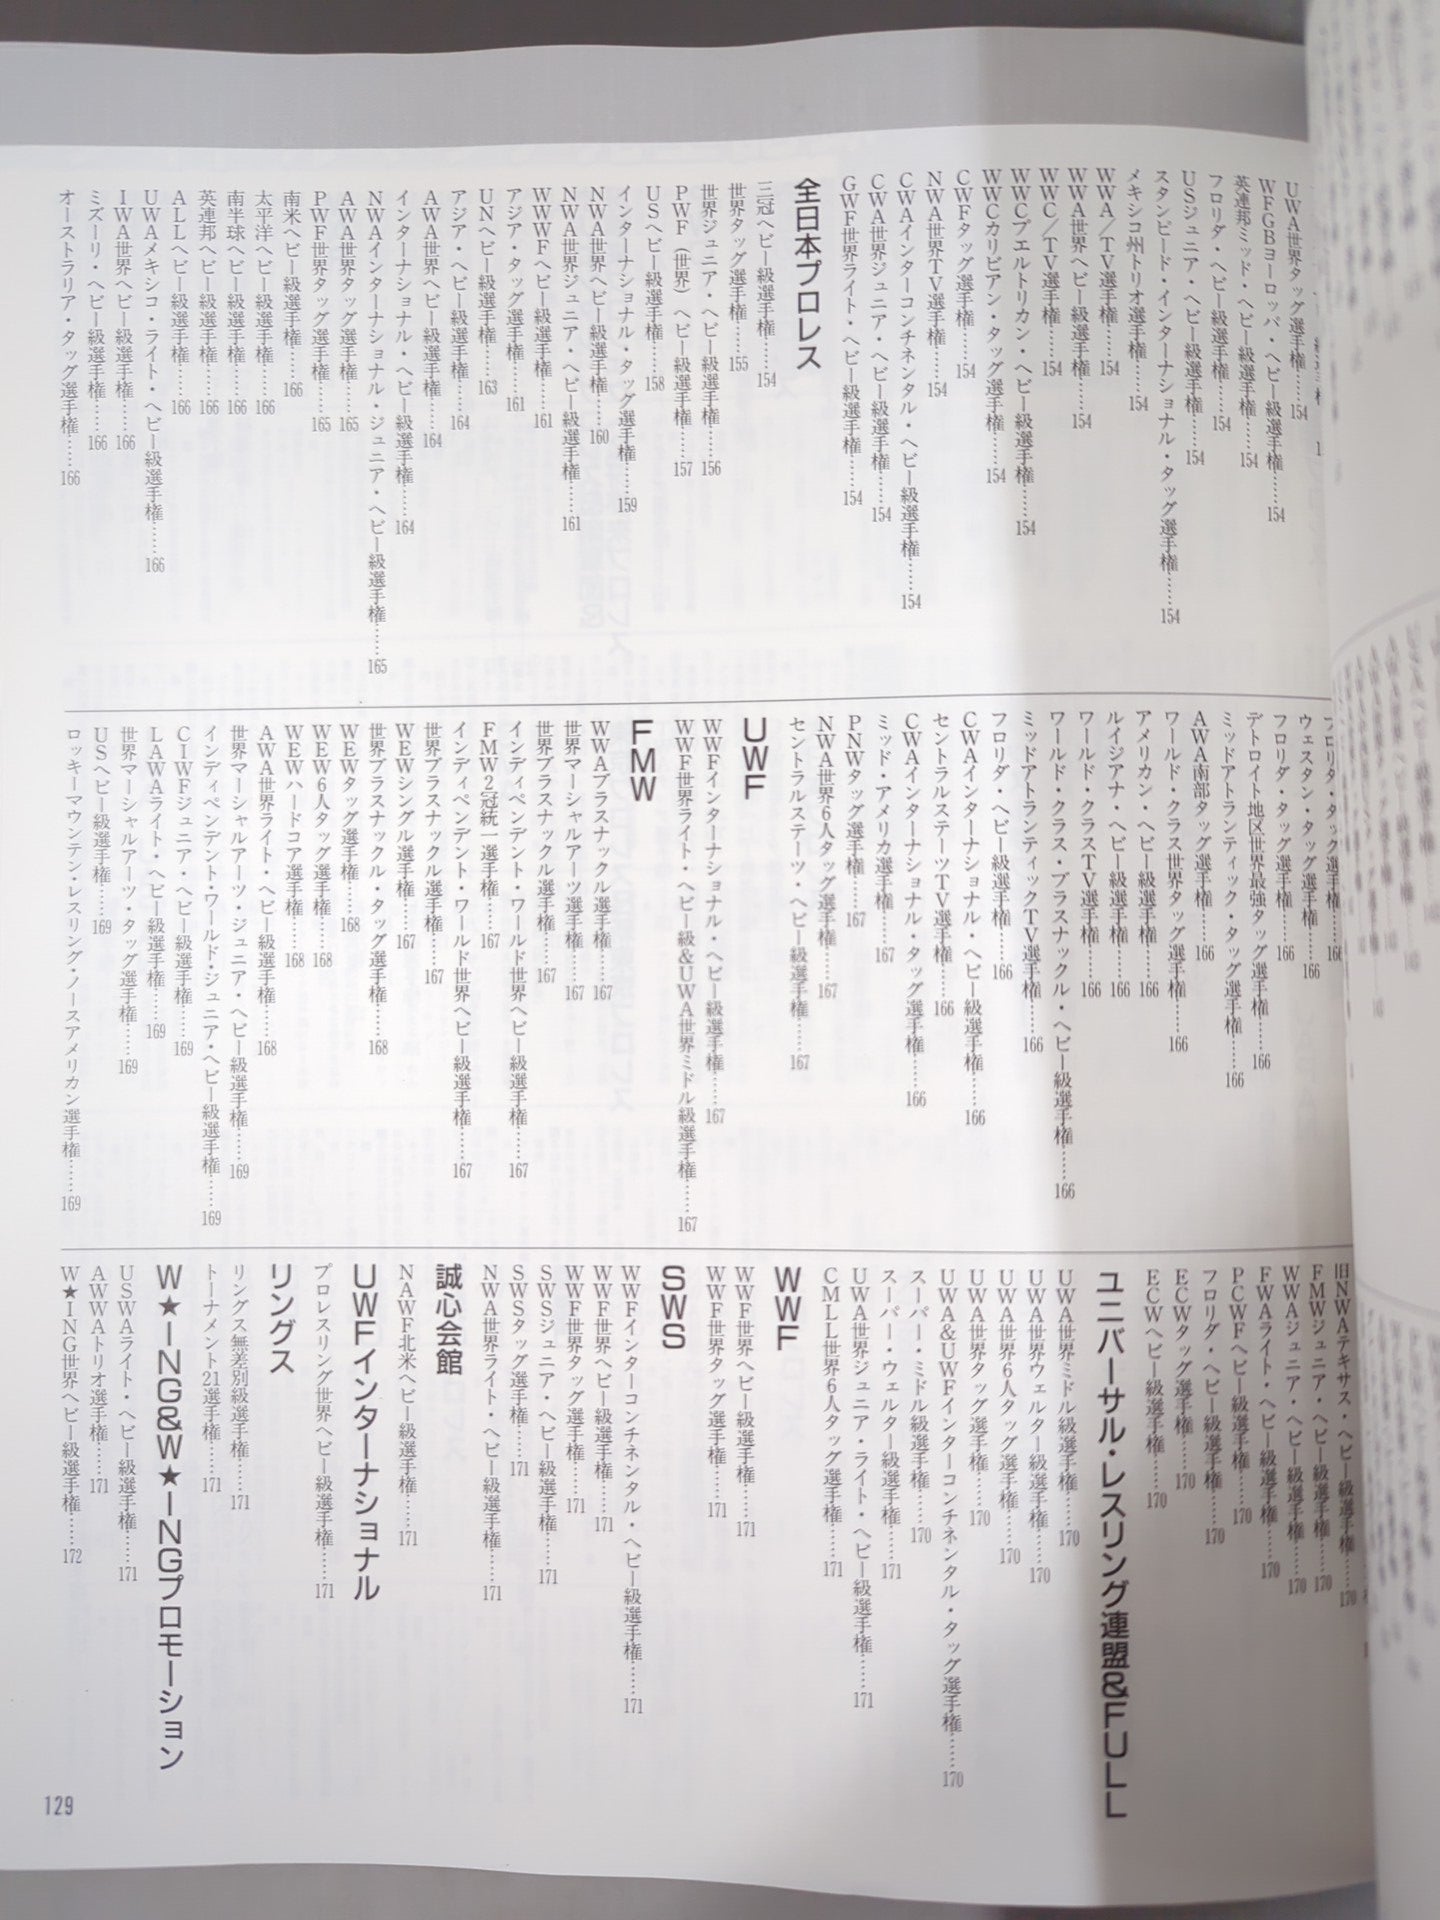 UWA世界タッグ選手権……154
WFGBヨーロッパ・ヘビー級選手権……154
英連邦ミッド・ヘビー級選手権……154
フロリダ・ヘビー級選手権……154
USジュニア・ヘビー級選手権……154
スタンピード・インターナショナル・タッグ選手権……154
メキシコ州トリオ選手権……154
WWA/TV選手権……154
WWA世界ヘビー級選手権……154
WWC/TV選手権……154
WWCプエルトリカン・ヘビー級選手権……154
WWCカリビアン・タッグ選手権……154
CWFタッグ選手権……154
NWA世界TV選手権……154
CWAインターコンチネンタル・ヘビー級選手権……154
CWA世界ジュニア・ヘビー級選手権……154
GWF世界ライト・ヘビー級選手権……154
全日本プロレス
三冠ヘビー級選手権……154
世界タッグ選手権……155
世界ジュニア・ヘビー級選手権……156
PWF(世界)ヘビー級選手権……157
USヘビー級選手権……158
インターナショナル・タッグ選手権……159
NWA世界ヘビー級選手権……160
NWA世界ジュニア・ヘビー級選手権……161
WWWFヘビー級選手権……161
アジア・タッグ選手権……161
UNヘビー級選手権……163
アジア・ヘビー級選手権……164
AWA世界ヘビー級選手権……164
インターナショナル・ヘビー級選手権……164
NWAインターナショナル・ジュニア・ヘビー級選手権……165
AWA世界タッグ選手権……165
PWF世界タッグ選手権……165
南米ヘビー級選手権……166
太平洋ヘビー級選手権……166
南半球ヘビー級選手権……166
英連邦ヘビー級選手権……166
ALLヘビー級選手権……166
UWAメキシコ・ライト・ヘビー級選手権……166
IWA世界ヘビー級選手権……166
ミズーリ・ヘビー級選手権……166
オーストラリア・タッグ選手権……166
フロリダ・タッグ選手権……166
ウェスタン・タッグ選手権……166
フロリダ・タッグ選手権……166
デトロイト地区世界最強タッグ選手権……166
ミッドアトランティック・タッグ選手権……166
AWA南部タッグ選手権……166
ワールド・クラス世界タッグ選手権……166
アメリカン・ヘビー級選手権……166
ルイジアナ・ヘビー級選手権……166
ワールド・クラスTV選手権……166
ワールド・クラス・ブラスナックル・ヘビー級選手権……166
ミッドアトランティックTV選手権……166
フロリダ・ヘビー級選手権……166
CWAインターナショナル・ヘビー級選手権……166
セントラルステーツTV選手権……166
CWAインターナショナル・タッグ選手権……166
ミッド・アメリカ選手権……167
PNWタッグ選手権……167
NWA世界6人タッグ選手権……167
セントラルステーツ・ヘビー級選手権……167
UWF
WWFインターナショナル・ヘビー級選手権……167
WWF世界ライト・ヘビー級&UWA世界ミドル級選手権……167
FMW
WWAブラスナックル選手権……167
世界マーシャルアーツ選手権……167
世界ブラスナックル選手権……167
インディペンデント・ワールド世界ヘビー級選手権……167
FMW2冠統一選手権……167
インディペンデント・ワールド世界ヘビー級選手権……167
世界ブラスナックル選手権……167
WEWシングル選手権……167
世界ブラスナックル・タッグ選手権……168
WEWタッグ選手権……168
WEW6人タッグ選手権……168
WEWハードコア選手権……168
AWA世界ライト・ヘビー級選手権……168
世界マーシャルアーツ・ジュニア・ヘビー級選手権……169
インディペンデント・ワールド・ジュニア・ヘビー級選手権……169
CIWFジュニア・ヘビー級選手権……169
LAWAライト・ヘビー級選手権……169
世界マーシャルアーツ・タッグ選手権……169
USヘビー級選手権……169
ロッキーマウンテン・レスリング・ノースアメリカン選手権……169
旧NWAテキサス・ヘビー級選手権……170
FMWジュニア・ヘビー級選手権……170
WWAジュニア・ヘビー級選手権……170
FWAライト・ヘビー級選手権……170
PCWFヘビー級選手権……170
フロリダ・ヘビー級選手権……170
ECWタッグ選手権……170
ECWヘビー級選手権……170
ユニバーサル・レスリング連盟&FULL
UWA世界ミドル級選手権……170
UWA世界ウェルター級選手権……170
UWA世界6人タッグ選手権……170
UWA世界タッグ選手権……170
UWA&UWFインターコンチネンタル・タッグ選手権……170
スーパー・ミドル級選手権……170
スーパー・ウェルター級選手権……171
UWA世界ジュニア・ライト・ヘビー級選手権……171
CMLL世界6人タッグ選手権……171
WWF
WWF世界ヘビー級選手権……171
WWF世界タッグ選手権……171
SWS
WWFインターコンチネンタル・ヘビー級選手権……171
WWF世界ヘビー級選手権……171
WWF世界タッグ選手権……171
SWSジュニア・ヘビー級選手権……171
SWSタッグ選手権……171
NWA世界ライト・ヘビー級選手権……171
誠心会館
NAWF北米ヘビー級選手権……171
UWFインターナショナル
プロレスリング世界ヘビー級選手権……171
リングス
リングス無差別級選手権……171
トーナメント21選手権……171
W★ING&W★INGプロモーション
USWAライト・ヘビー級選手権……171
AWWAトリオ選手権……171
W★ING世界ヘビー級選手権……172
129